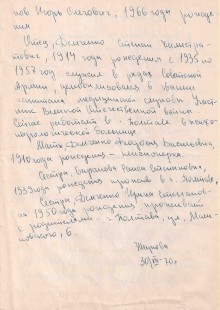 ков Игорь Олегович, 1966 года рожде-
ния
Отец, Демченко Степан Дмитри-
евич, 1914 года рождения с 1935 по
1957 год служил в рядах Советской
Армии, демобилизовался в звании
капитана медицинской службы. Участ-
ник Великой Отечественной войны
Сейчас работает в г. Полтаве в психо-
неврологической больнице.
Мать, Демченко Васильевна,
1910 года рождения - пенсионерка.
Сестра, Степановна,
1939 года рождения прожив. в г. Полтаве,
Сестра Демченко Ирина Степанов-
на 1950 года рождения проживает
с родителями г. Полтава, ул.
6.
30/ 70г.